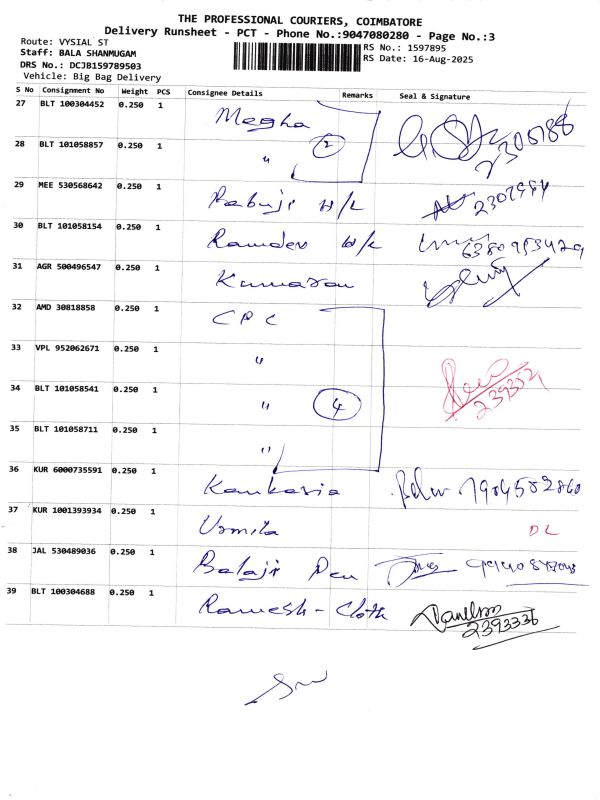 THE PROFESSIONAL COURIERS, COIMBATORE
Delivery Runsheet - PCT - Phone No.:9047080280 - Page No.:3
Route: VYSIAL ST
Staff: BALA SHANMUGAM
DRS No.: DCJB159789503
Vehicle: Big Bag Delivery
RS No.: 1597895
RS Date: 16-Aug-2025
S No Consignment No Weight PCS Consignee Details Remarks Seal & Signature
27 BLT 100304452 0.250 1 Megha
28 BLT 101058857 0.250 1 " 2
29 MEE 530568642 0.250 1 Babuji H/L
30 BLT 101058154 0.250 1 Ramdev H/L
31 AGR 500496547 0.250 1 Kumaran
32 AMD 30818858 0.250 1 CPC
33 VPL 952062671 0.250 1 "
34 BLT 101058541 0.250 1 " 4
35 BLT 101058711 0.250 1 "
36 KUR 6000735591 0.250 1 Kankaria
37 KUR 1001393934 0.250 1 Urmila DL
38 JAL 530489036 0.250 1 Balaji Pen
39 BLT 100304688 0.250 1 Ramesh - Cloth
2393336